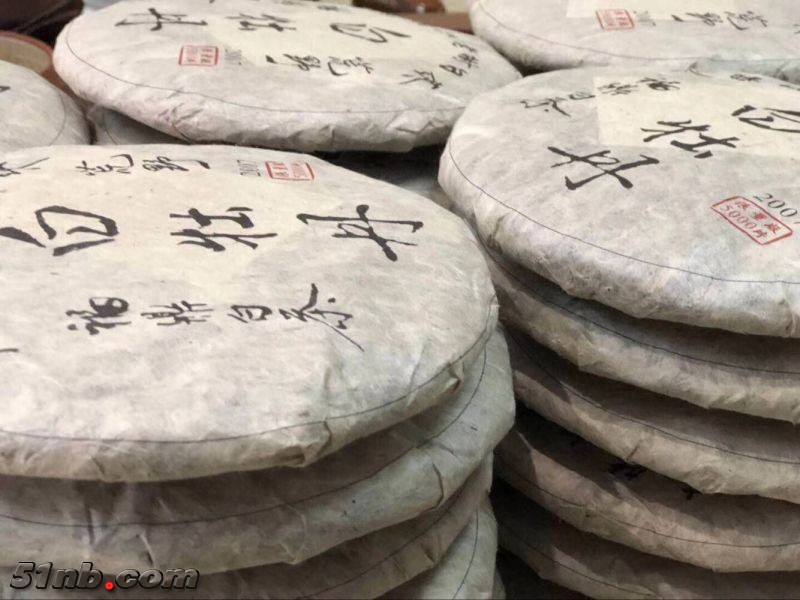 白牡丹
荒野
2007
荒野
2007
白牡丹
福鼎白茶
福鼎白茶
白牡丹
200
限量版
5000片
51nb.com